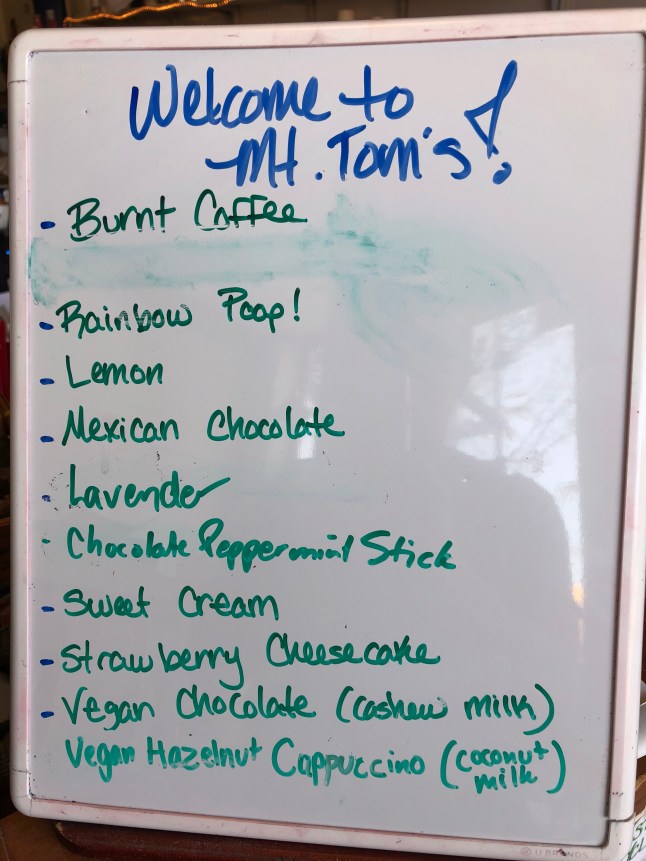 Welcome to
Mt. Tom's!
- Burnt Coffee
- Rainbow Poop!
- Lemon
- Mexican Chocolate
- Lavender
- Chocolate Peppermint Stick
- Sweet Cream
- Strawberry Cheesecake
- Vegan Chocolate (cashew milk)
Vegan Hazelnut Cappuccino (coconut
milk)